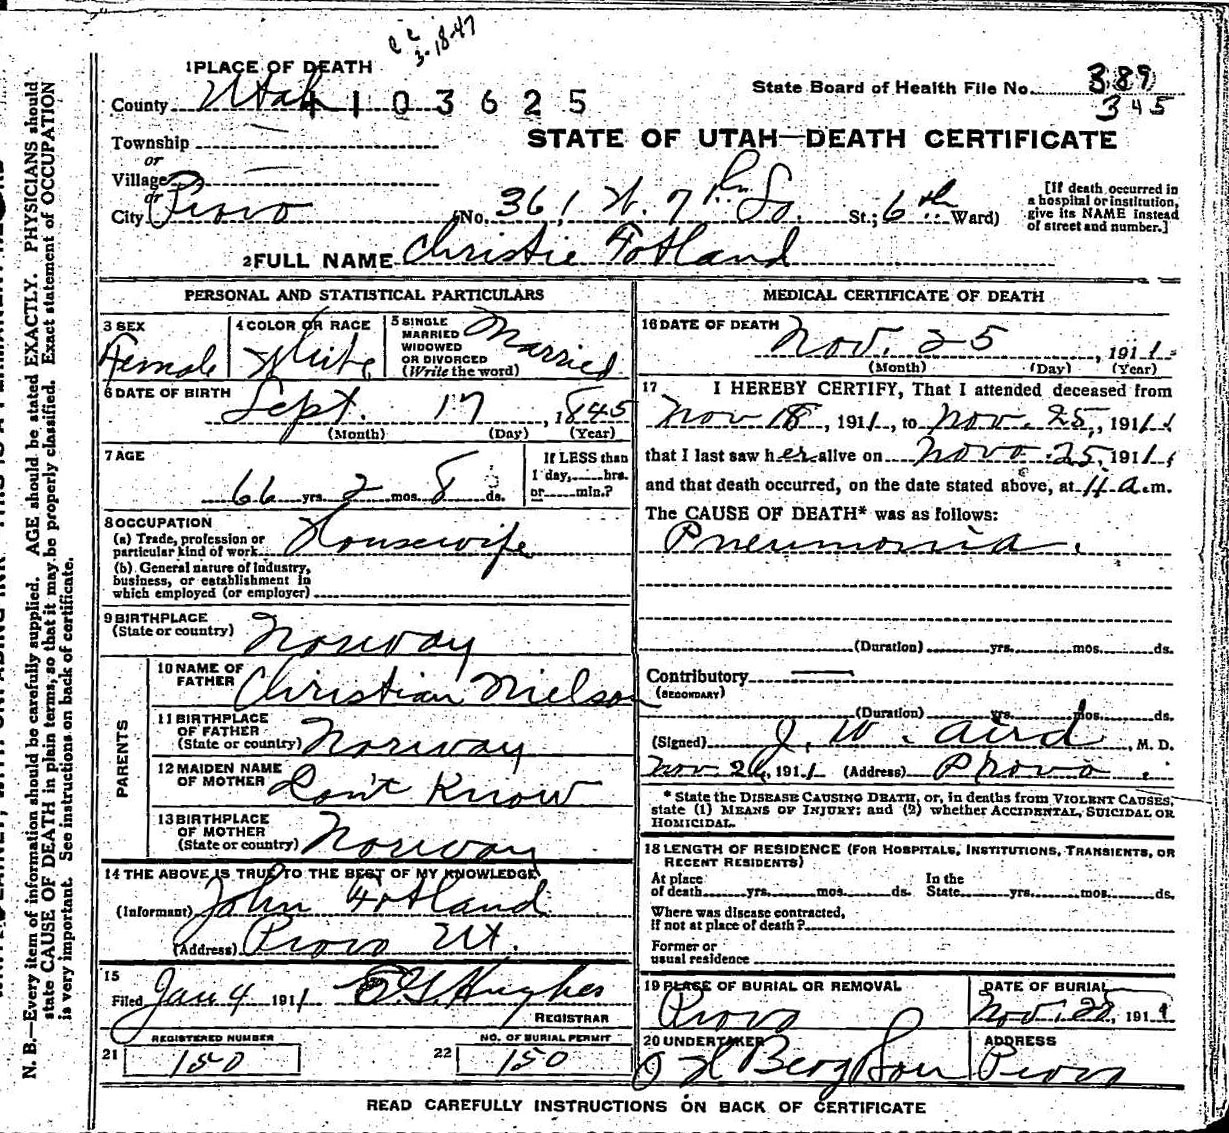 c c
3-18-47
1 PLACE OF DEATH
County Utah 4103625
State Board of Health File No. 389
345
STATE OF UTAH—DEATH CERTIFICATE
Township
or
Village
or
City Provo (No. 361 W. 7th So. St.; 6th Ward)
[If death occurred in a hospital or institution, give its NAME instead of street and number.]
2 FULL NAME Christie Fotland
PERSONAL AND STATISTICAL PARTICULARS
3 SEX Female
4 COLOR OR RACE White
5 SINGLE MARRIED WIDOWED OR DIVORCED (Write the word) Married
6 DATE OF BIRTH Sept. 17, 1845
(Month) (Day) (Year)
7 AGE
66 yrs. 2 mos. 8 ds.
If LESS than 1 day, hrs. or min.?
8 OCCUPATION
(a) Trade, profession or particular kind of work Housewife
(b) General nature of industry, business, or establishment in which employed (or employer)
9 BIRTHPLACE
(State or country) Norway
PARENTS
10 NAME OF FATHER Christian Nielson
11 BIRTHPLACE OF FATHER (State or country) Norway
12 MAIDEN NAME OF MOTHER Don't Know
13 BIRTHPLACE OF MOTHER (State or country) Norway
14 THE ABOVE IS TRUE TO THE BEST OF MY KNOWLEDGE
(Informant) John Fotland
(Address) Provo Ut.
15
Filed Jan 4 1911 Hughes
REGISTRAR
REGISTERED NUMBER
21 150
NO. OF BURIAL PERMIT
22 150
MEDICAL CERTIFICATE OF DEATH
16 DATE OF DEATH Nov. 25, 1911
(Month) (Day) (Year)
17 I HEREBY CERTIFY, That I attended deceased from
Nov 18, 1911, to Nov. 25, 1911
that I last saw her alive on Nov. 25, 1911,
and that death occurred, on the date stated above, at 4 a.m.
The CAUSE OF DEATH* was as follows:
Pneumonia.
(Duration) yrs. mos. ds.
Contributory
(SECONDARY)
(Duration) yrs. mos. ds.
(Signed) J. W. Aird, M. D.
Nov 26, 1911 (Address) Provo
* State the DISEASE CAUSING DEATH, or, in deaths from VIOLENT CAUSES, state (1) MEANS OF INJURY; and (2) whether ACCIDENTAL, SUICIDAL OR HOMICIDAL.
18 LENGTH OF RESIDENCE (FOR HOSPITALS, INSTITUTIONS, TRANSIENTS, OR RECENT RESIDENTS)
At place of death yrs. mos. ds. In the State yrs. mos. ds.
Where was disease contracted, if not at place of death?
Former or usual residence
19 PLACE OF BURIAL OR REMOVAL Provo
DATE OF BURIAL Nov. 28, 1911
20 UNDERTAKER O H Berg & Son
ADDRESS Provo
READ CAREFULLY INSTRUCTIONS ON BACK OF CERTIFICATE
N. B.—Every item of information should be carefully supplied. AGE should be stated EXACTLY. PHYSICIANS should
state CAUSE OF DEATH in plain terms, so that it may be properly classified. Exact statement of OCCUPATION
is very important. See instructions on back of certificate.